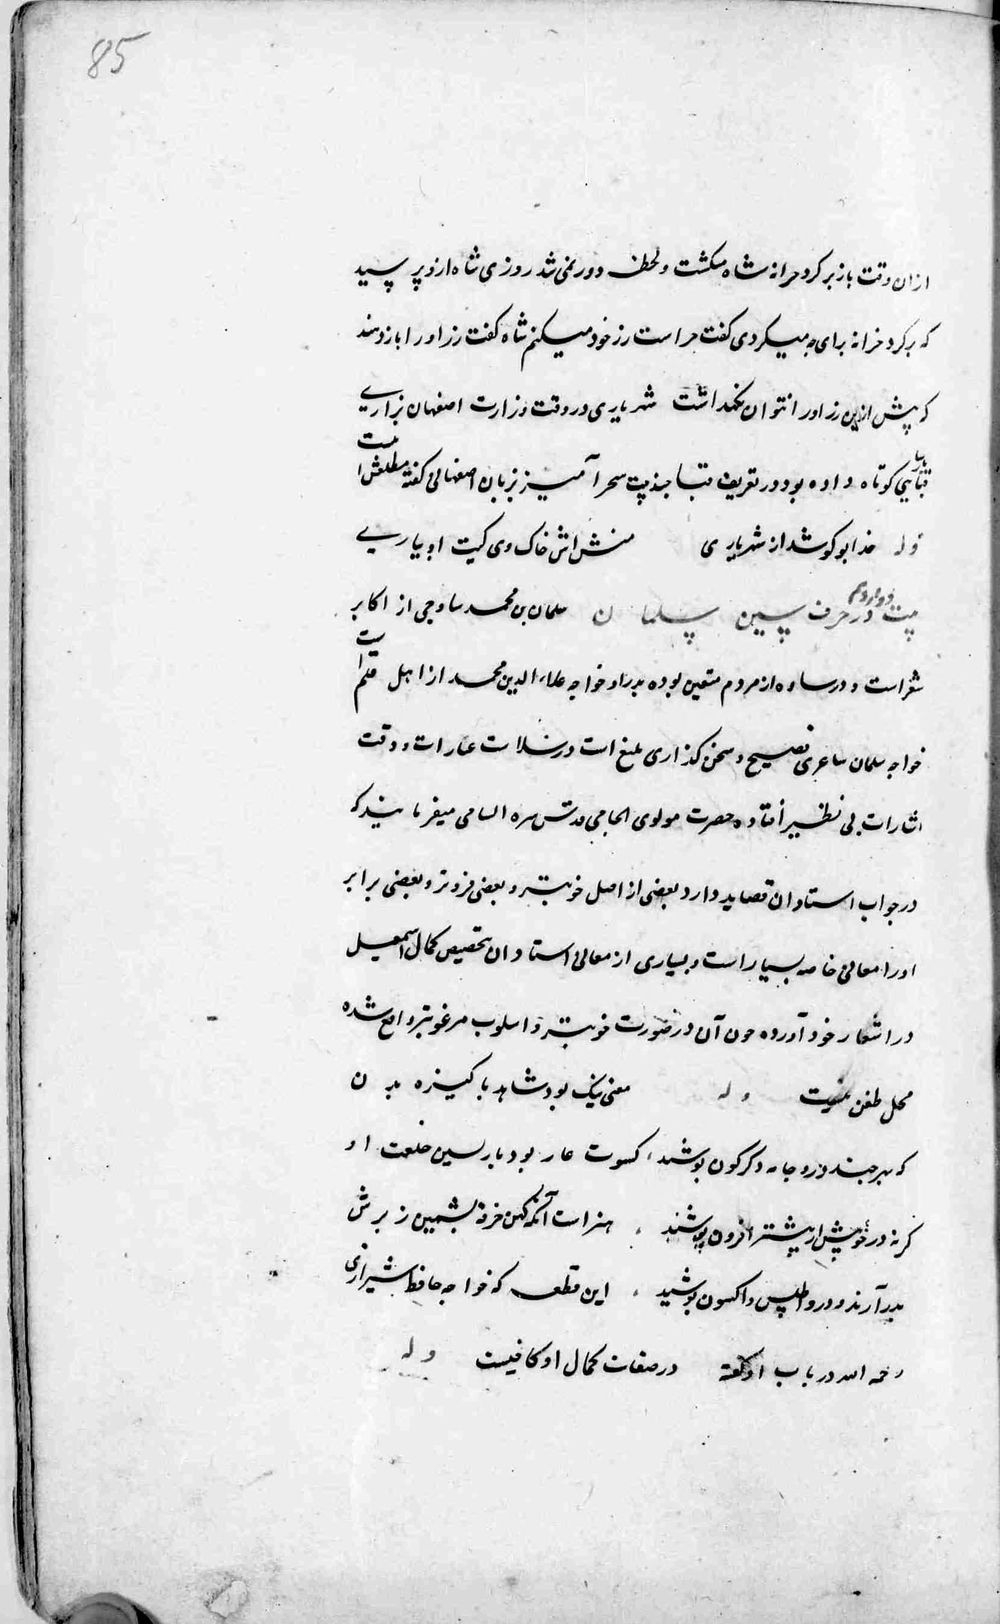 85
ازان وقت باز بر کرد خزانه شاه میکشت و لحظه دور نمی شد روزی شاه ازو پر سید
که بر کرد خزانه برای چه میکردی کفت حراست زر خود میکنم شاه کفت زر اورا باز دهند
که پیش ازین زر اورا نتوان نکهداشت شهریاری در وقت وزارت اصفهان بزاریی
قبایی کوتاه داده بود در تعریف قبا چند بیت سحر آمیز بزبان اصفهانی کفته مطلعش ا
ینست
وله خدا بو کوشد از شهریاری منش اش خاک وی کیت او بیاریی
بیت دوازدهم در حرف سین سلمان سلمان بن محمد ساوجی از اکابر
شعراست و در ساوه از مردم متعین بوده پدر او خواجه علاء الدین محمد از اهل قلم ا
ست
خواجه سلمان شاعری فصیح و سخن کذاری بلیغ است در سلاست عبارات و دقت
اشارات بی نظیر افتاده حضرت مولوی الجامی قدس سره السامی میفرمایند که
در جواب استادان قصاید دارد بعضی از اصل خوبتر و بعضی فروتر و بعضی برابر
اورا معانی خاصه بسیار است و بسیاری از معانی استادان بتخصیص کمال اسمعیل
در اشعار خود آورده چون آن در صورت خوبتر و اسلوب مرغوبتر واقع شده
محل طعن نیست وله معنی نیک بود شاهد پاکیزه بدن
که بهر چند درو جامه دکرکون پوشند کسوت عار بود باز پسین خلعت او
کر نه در خوبیش از پیشتر افزون پوشند هنر است آنکه کهن خرقه پشمین ز برش
بدر آرند و درو اطلس و اکسون پوشند این قطعه که خواجه حافظ شیرازی
رحمه الله در باب او کفته در صفات کمال او کافیست وله